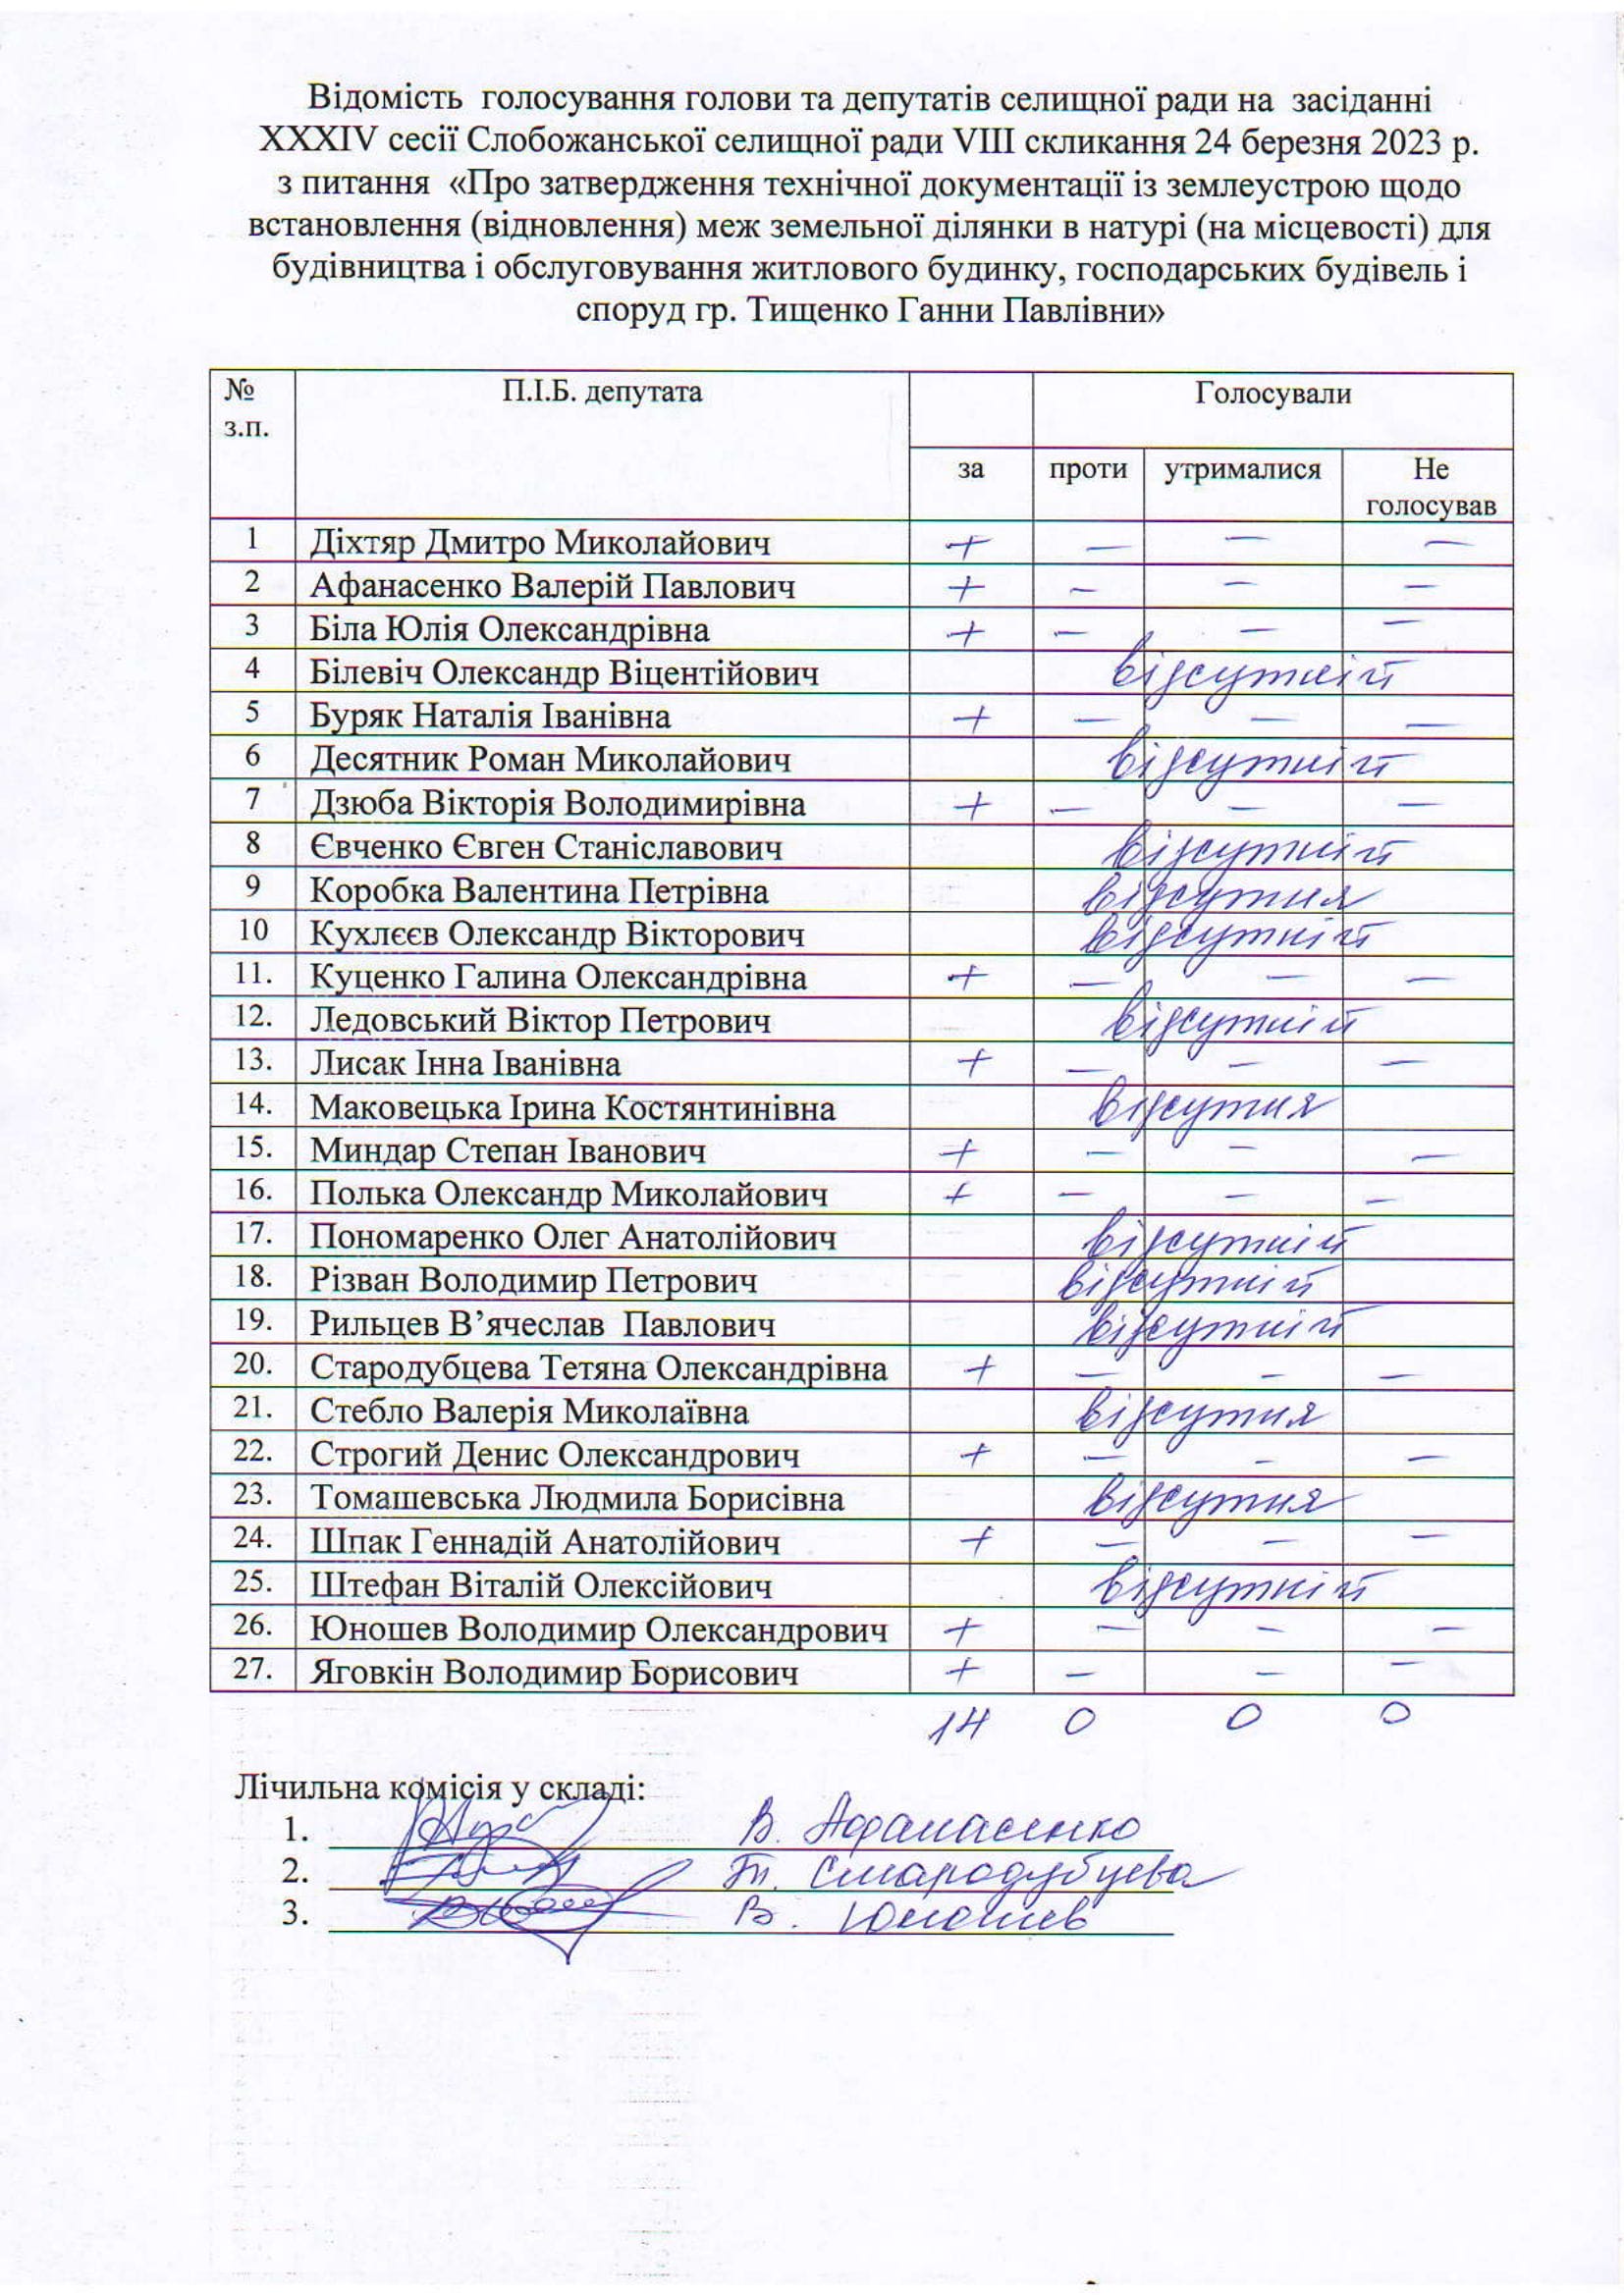 Відомість голосування голови та депутатів селищної ради на засіданні
XXXIV сесії Слобожанської селищної ради VIII скликання 24 березня 2023 р.
з питання «Про затвердження технічної документації із землеустрою щодо
встановлення (відновлення) меж земельної ділянки в натурі (на місцевості) для
будівництва і обслуговування житлового будинку, господарських будівель і
споруд гр. Тищенко Ганни Павлівни»
№ з.п. П.І.Б. депутата Голосували
за проти утрималися Не голосував
1 Діхтяр Дмитро Миколайович + — — —
2 Афанасенко Валерій Павлович + — — —
3 Біла Юлія Олександрівна + — — —
4 Білевіч Олександр Віцентійович відсутній
5 Буряк Наталія Іванівна + — — —
6 Десятник Роман Миколайович відсутній
7 Дзюба Вікторія Володимирівна + — — —
8 Євченко Євген Станіславович відсутній
9 Коробка Валентина Петрівна відсутня
10 Кухлєєв Олександр Вікторович відсутній
11. Куценко Галина Олександрівна + — — —
12. Ледовський Віктор Петрович відсутній
13. Лисак Інна Іванівна + — — —
14. Маковецька Ірина Костянтинівна відсутня
15. Миндар Степан Іванович + — — —
16. Полька Олександр Миколайович + — — —
17. Пономаренко Олег Анатолійович відсутній
18. Різван Володимир Петрович відсутній
19. Рильцев В’ячеслав Павлович відсутній
20. Стародубцева Тетяна Олександрівна + — — —
21. Стебло Валерія Миколаївна відсутня
22. Строгий Денис Олександрович + — — —
23. Томашевська Людмила Борисівна відсутня
24. Шпак Геннадій Анатолійович + — — —
25. Штефан Віталій Олексійович відсутній
26. Юношев Володимир Олександрович + — — —
27. Яговкін Володимир Борисович + — — —
14 0 0 0
Лічильна комісія у складі:
1. В. Афанасенко
2. Т. Стародубцева
3. В. Юношев